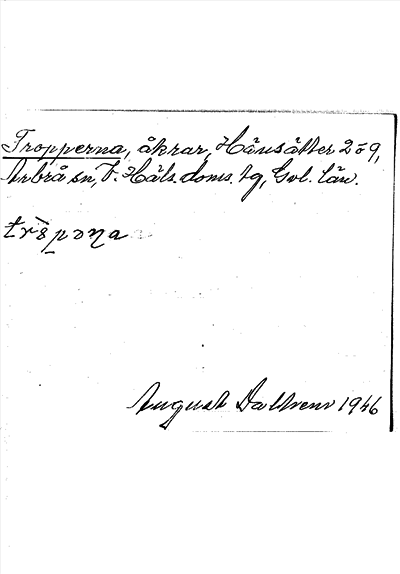 Tropperna, åkrar, Hänsätter 2 o 9,
Arbrå sn, V. Häls. doms. tg, Gvl. län.
trȯ̀pəṇa
August 1946